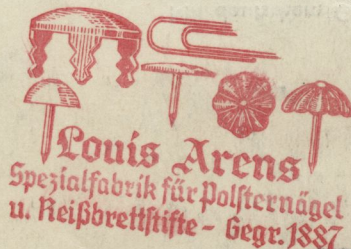 Louis Arens
Spezialfabrik für Polsternägel
u. Reißbrettstifte - Gegr. 1887